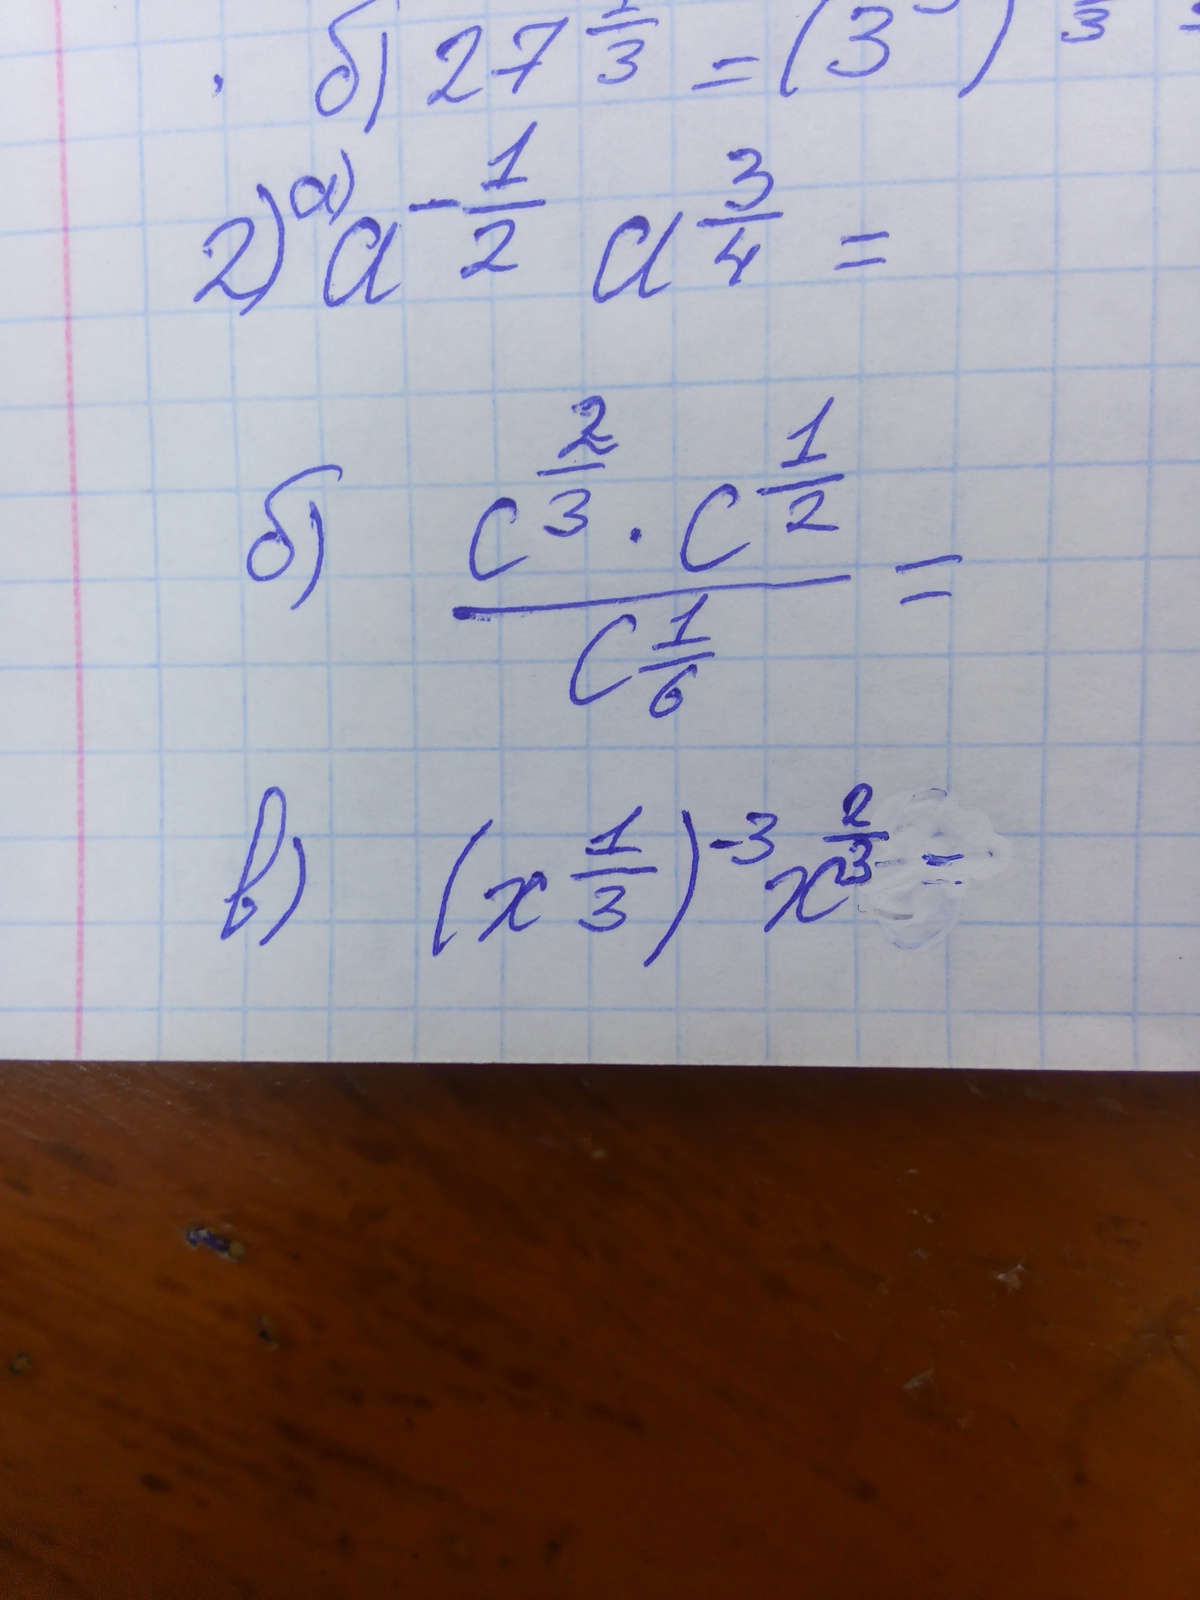 б) 27^{\frac{1}{3}} = (3^3)^{\frac{1}{3}} =
2) а) a^{-\frac{1}{2}} a^{\frac{3}{4}} =
б) \frac{c^{\frac{2}{3}} \cdot c^{\frac{1}{2}}}{c^{\frac{1}{6}}} =
в) (x^{\frac{1}{3}})^{-3} x^{\frac{2}{3}} =